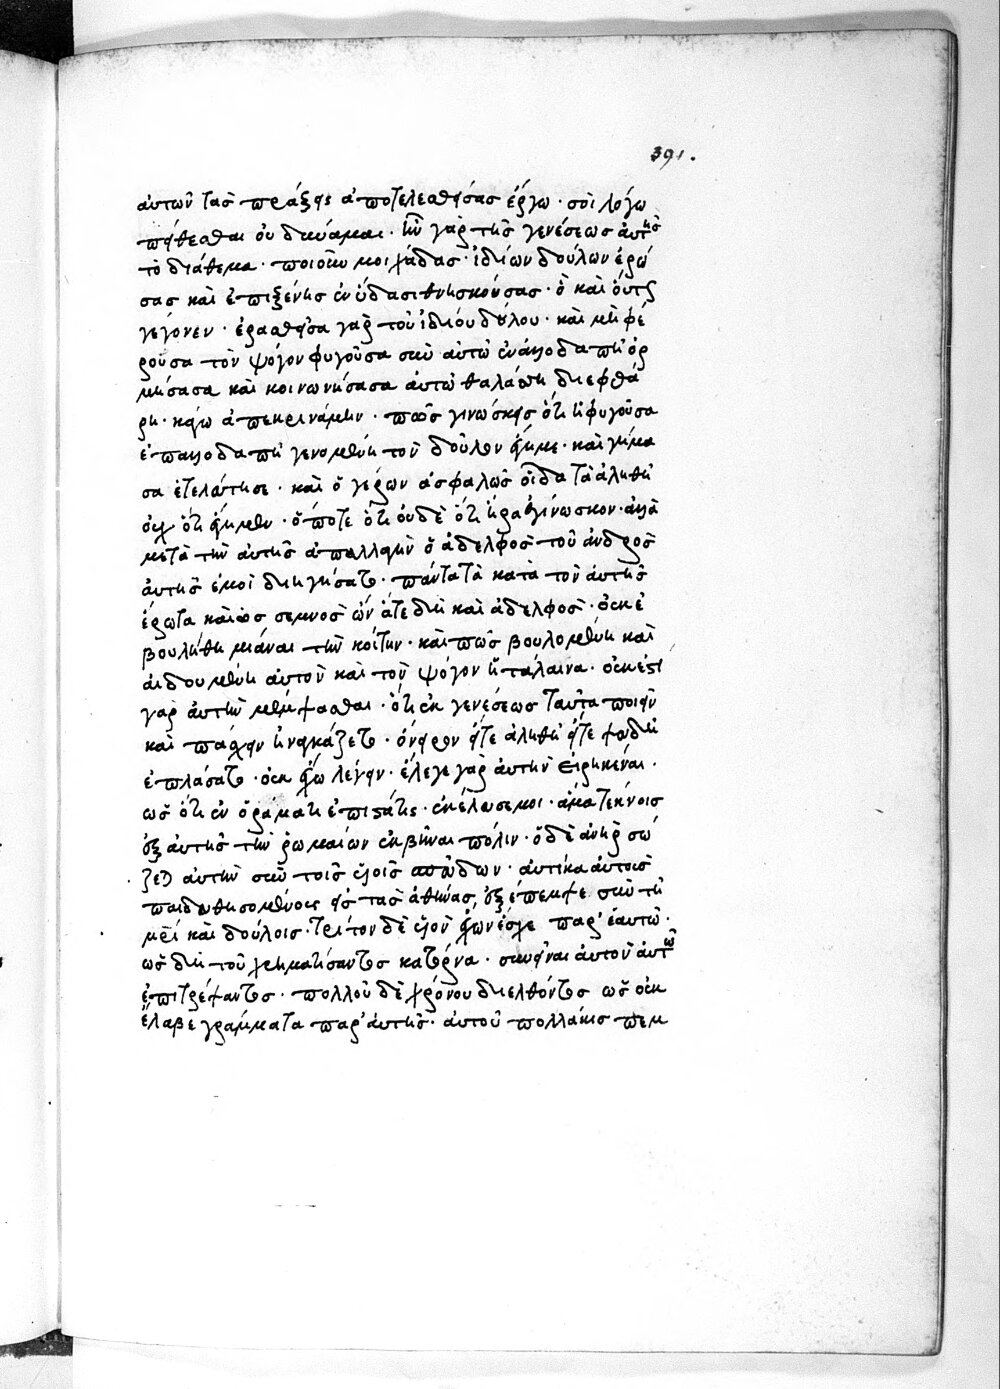 391.
αὐτῶν τὰς πράξεις ἀποτελεσθείσας ἔργω · σοὶ λόγω
πείθεσθαι οὐ δύναμαι · ἦν γὰρ τῆς γενέσεως αὐτῆς
τὸ διάθεμα · ποιοῦν μοιχάδας · ἰδίων δούλων ἐρώ
σας καὶ ἐπιξένης ἐν ὕδασι θνησκούσας · ὃ καὶ οὕτως
γέγονεν · ἐρασθεῖσα γὰρ τοῦ ἰδίου δούλου · καὶ μὴ φέ
ρουσα τὸν ψόγον φυγοῦσα σὺν αὐτῶ ἐν ἀλλοδαπῆ ὁρ
μήσασα καὶ κοινωνήσασα αὐτῶ θαλάσση διεφθά
ρη · κἀγὼ ἀπεκρινάμην · πῶς γινώσκεις ὅτι ἡ φυγοῦσα
ἐπ ἀλλοδαπῆ γενομένη τὸν δοῦλον ἔγημε · καὶ γήμα
σα ἐτελεύτησε · καὶ ὁ γέρων ἀσφαλῶς οἶδα τἀληθῆ
οὐχ ὅτι ἔγημεν · ὁπότε ὅτι οὐδὲ ὅτι ἤρα ἐγίνωσκον · ἀλλὰ
μετὰ τὴν αὐτῆς ἀπαλλαγὴν ὁ ἀδελφὸς τοῦ ἀνδρὸς
αὐτῆς ἐμοὶ διηγήσατο · πάντα τὰ κατὰ τὸν αὐτῆς
ἔρωτα καὶ ὡς σεμνὸς ὢν ἅτε δὴ καὶ ἀδελφὸς · οὐκ ἐ
βουλήθη μιάναι τὴν κοίτην · καὶ πῶς βουλομένη καὶ
αἰδουμένη αὐτὸν καὶ τὸν ψόγον ἡ τάλαινα · οὐκ ἔστι
γὰρ αὐτὴν μέμψασθαι · ὅτι ἐκ γενέσεως ταῦτα ποιεῖν
καὶ πάσχειν ἠναγκάζετο · ὄνειρον εἴτε ἀληθῆ εἴτε ψευδῆ
ἐπλάσατο · οὐκ ἔχω λέγειν · ἔλεγε γὰρ αὐτὴν εἰρηκέναι ·
ὡς ὅτι ἐν ὁράματι ἐπιστάτις · ἐκέλευσέ μοι · ἅμα τέκνοις
ἐξ αὐτῆς τὴν ῥωμαίων ἐκβῆναι πόλιν · ὁ δὲ ἀνὴρ σώ
ζεσθαι αὐτὴν σὺν τοῖς υἱοῖς σπεύδων · αὐτίκα αὐτοὺς
παιδευθησομένους εἰς τὰς ἀθήνας, ἐξέπεμψε σὺν τῆ
μρὶ καὶ δούλοις · τρίτον δὲ υἱὸν ἔχων ἔσχε παρ' ἑαυτῶ ·
ὡς δὴ τοῦ χρηματίσαντος κατ' ὄναρ · συνεῖναι αὐτὸν αὐτῶ
ἐπιτρέψαντος · πολλοῦ δὲ χρόνου διελθόντος ὡς οὐκ
ἔλαβε γράμματα παρ' αὐτῆς · αὐτοῦ πολλάκις πεμ